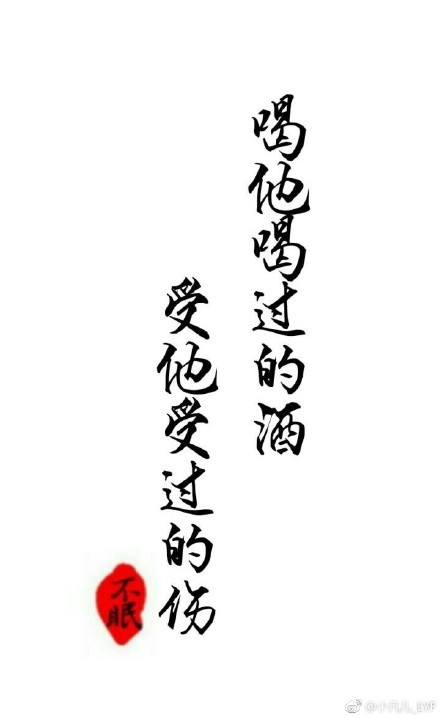 喝他喝过的酒
受他受过的伤
不眠
@小凡儿_LYF